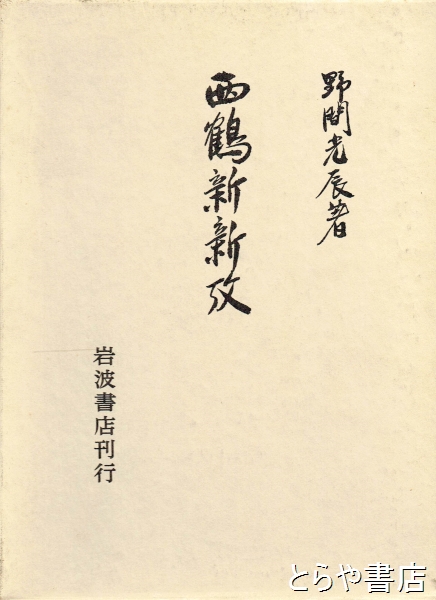 野間光辰著
西鶴新新攷
岩波書店刊行
とらや書店